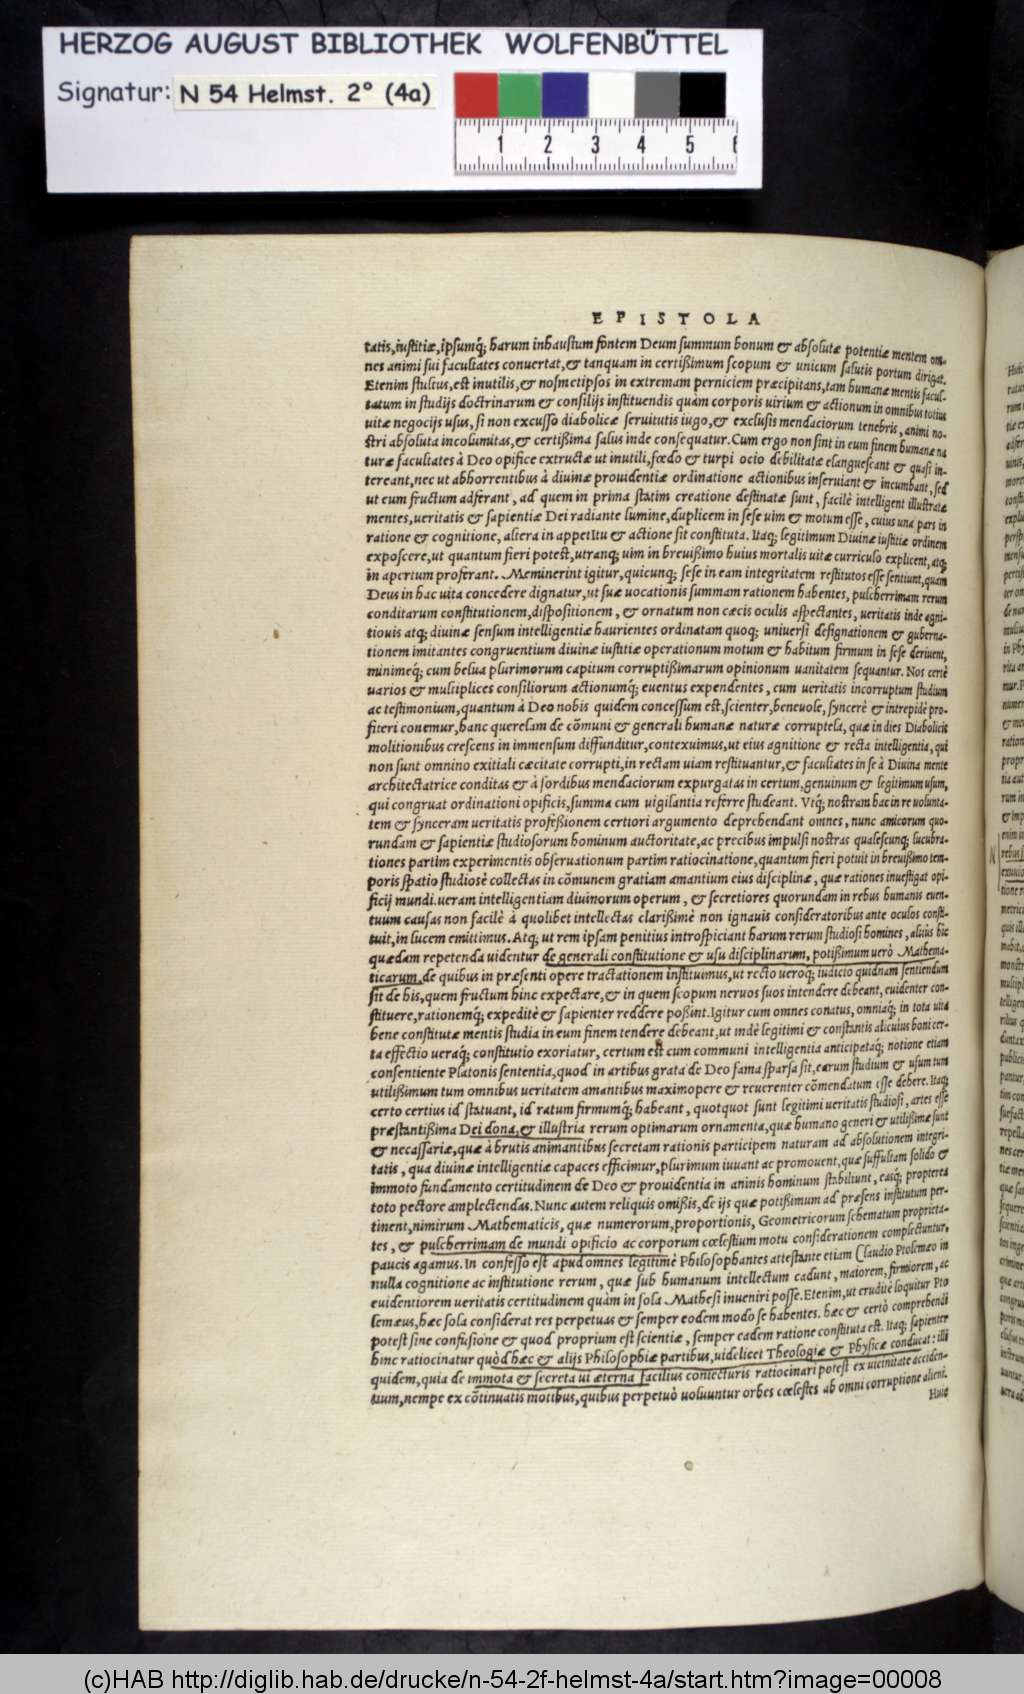 HERZOG AUGUST BIBLIOTHEK WOLFENBÜTTEL
Signatur: N 54 Helmst. 2° (4a)
1 2 3 4 5
EPISTOLA
tatis, iustitiæ, ipsumq́; harum inhaustum fontem Deum summum bonum & absolutæ potentiæ mentem om-
nes animi sui facultates conuertat, & tanquam in certißimum scopum & unicum salutis portum dirigat.
Etenim stultus, est inutilis, & nosmetipsos in extremam perniciem præcipitans, tam humanæ mentis facul-
tatum in studijs doctrinarum & consilijs instituendis quàm corporis uirium & actionum in omnibus totius
uitæ negocijs usus, si non excusso diabolicæ seruitutis iugo, & exclusis mendaciorum tenebris, animi no-
stri absoluta incolumitas, & certißima salus inde consequatur. Cum ergo non sint in eum finem humanæ na
turæ facultates à Deo opifice extructæ ut inutili, fœdo & turpi ocio debilitatæ elanguescant & quasi in-
tereant, nec ut abhorrentibus à diuinæ prouidentiæ ordinatione actionibus inseruiant & incumbant, sed
ut eum fructum adferant, ad quem in prima statim creatione destinatæ sunt, facilè intelligent illustratæ
mentes, ueritatis & sapientiæ Dei radiante lumine, duplicem in sese uim & motum esse, cuius una pars in
ratione & cognitione, altera in appetitu & actione sit constituta. Itaq; legitimum Diuinæ iustitiæ ordinem
exposcere, ut quantum fieri potest, utranq; uim in breuißimo huius mortalis uitæ curriculo explicent, atq;
in apertum proferant. Meminerint igitur, quicunq; sese in eam integritatem restitutos esse sentiunt, quam
Deus in hac uita concedere dignatur, ut suæ uocationis summam rationem habentes, pulcherrimam rerum
conditarum constitutionem, dispositionem, & ornatum non cæcis oculis aspectantes, ueritatis inde agni-
tiouis atq; diuinæ sensum intelligentiæ haurientes ordinatam quoq; uniuersi designationem & guberna-
tionem imitantes congruentium diuinæ iustitiæ operationum motum & habitum firmum in sese deriuent,
minimeq́; cum belua plurimorum capitum corruptißimarum opinionum uanitatem sequantur. Nos certè
uarios & multiplices consiliorum actionumq́; euentus expendentes, cum ueritatis incorruptum studium
ac testimonium, quantum à Deo nobis quidem concessum est, scienter, beneuole, syncerè & intrepidè pro-
fiteri conemur, hanc querelam de cōmuni & generali humanæ naturæ corruptela, quæ in dies Diabolicis
molitionibus crescens in immensum diffunditur, contexuimus, ut eius agnitione & recta intelligentia, qui
non sunt omnino exitiali cæcitate corrupti, in rectam uiam restituantur, & facultates in se à Diuina mente
architectatrice conditas & à sordibus mendaciorum expurgatas in certum, genuinum & legitimum usum,
qui congruat ordinationi opificis, summa cum uigilantia referre studeant. Vtq́; nostram hac in re uolunta-
tem & synceram ueritatis profeßionem certiori argumento deprehendant omnes, nunc amicorum quo-
rundam & sapientiæ studiosorum hominum auctoritate, ac precibus impulsi nostras qualescunq; lucubra-
tiones partim experimentis obseruationum partim ratiocinatione, quantum fieri potuit in breuißimo tem-
poris spatio studiosè collectas in cōmunem gratiam amantium eius disciplinæ, quæ rationes inuestigat opi-
ficij mundi. ueram intelligentiam diuinorum operum, & secretiores quorundam in rebus humanis euen-
tuum causas non facilè à quolibet intellectas clarißimè non ignauis consideratoribus ante oculos consti-
tuit, in lucem emittimus. Atq; ut rem ipsam penitius introspiciant harum rerum studiosi homines, altius hic
quædam repetenda uidentur de generali constitutione & usu disciplinarum, potißimum uerò Mathema-
ticarum, de quibus in præsenti opere tractationem instituimus, ut recto ueroq; iudicio quidnam sentiendum
sit de his, quem fructum hinc expectare, & in quem scopum neruos suos intendere debeant, euidenter con-
stituere, rationemq́; expeditè & sapienter reddere poßint. Igitur cum omnes conatus, omniaq́; in tota uita
bene constitutæ mentis studia in eum finem tendere debeant, ut indè legitimi & constantis alicuius boni cer-
ta effectio ueraq́; constitutio exoriatur, certum est cum communi intelligentia anticipataq́; notione etiam
consentiente Platonis sententia, quod in artibus grata de Deo fama sparsa sit, earum studium & usum tum
utilißimum tum omnibus ueritatem amantibus maximopere & reuerenter cōmendatum esse debere. Itaq;
certo certius id statuant, id ratum firmumq́; habeant, quotquot sunt legitimi ueritatis studiosi, artes esse
præstantißima Dei dona, & illustria rerum optimarum ornamenta, quæ humano generi & utilißimæ sunt
& necessariæ, quæ à brutis animantibus secretam rationis participem naturam ad absolutionem integri-
tatis, qua diuinæ intelligentiæ capaces efficimur, plurimum iuuant ac promouent, quæ suffultam solido &
immoto fundamento certitudinem de Deo & prouidentia in animis hominum stabiliunt, easq́; propterea
toto pectore amplectendas. Nunc autem reliquis omißis, de ijs quæ potißimum ad præsens institutum per-
tinent, nimirum Mathematicis, quæ numerorum, proportionis, Geometricorum schematum proprieta-
tes, & pulcherrimam de mundi opificio ac corporum cœlestium motu considerationem complectuntur,
paucis agamus. In confesso est apud omnes legitimè Philosophantes attestante etiam Claudio Ptolemæo in
nulla cognitione ac institutione rerum, quæ sub humanum intellectum cadunt, maiorem, firmiorem, ac
euidentiorem ueritatis certitudinem quàm in sola Mathesi inueniri posse. Etenim, ut eruditè loquitur Pto
lemæus, hæc sola considerat res perpetuas & semper eodem modo se habentes. hæc & certò comprehendi
potest sine confusione & quod proprium est scientiæ, semper eadem ratione constituta est. Itaq; sapienter
hinc ratiocinatur quòd hæc & alijs Philosophiæ partibus, uidelicet Theologiæ & Physicæ conducat: illi
quidem, quia de immota & secreta ui æterna facilius coniecturis ratiocinari potest ex uicinitate acciden-
tium, nempe ex cōtinuatis motibus, quibus perpetuò uoluuntur orbes cœlestes ab omni corruptione alieni.
Huic
(c)HAB http://diglib.hab.de/drucke/n-54-2f-helmst-4a/start.htm?image=00008